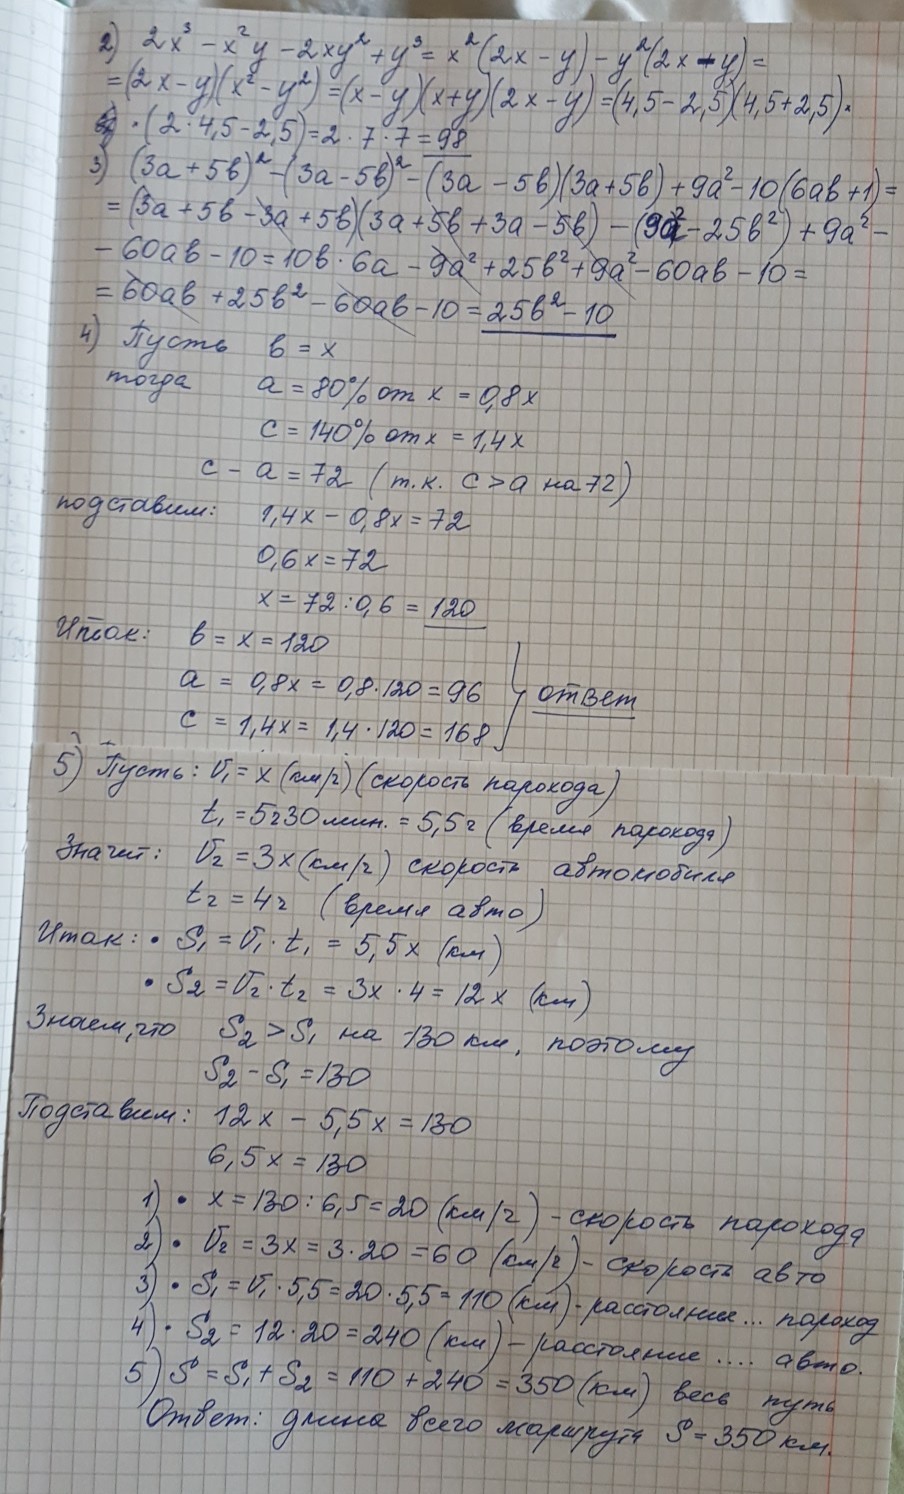 2) 2x³ - x²y - 2xy² + y³ = x²(2x - y) - y²(2x - y) =
= (2x - y)(x² - y²) = (x - y)(x + y)(2x - y) = (4,5 - 2,5)(4,5 + 2,5)·
· (2 · 4,5 - 2,5) = 2 · 7 · 7 = 98
3) (3a + 5b)² - (3a - 5b)² - (3a - 5b)(3a + 5b) + 9a² - 10(6ab + 1) =
= (3a + 5b - 3a + 5b)(3a + 5b + 3a - 5b) - (9a² - 25b²) + 9a² -
- 60ab - 10 = 10b · 6a - 9a² + 25b² + 9a² - 60ab - 10 =
= 60ab + 25b² - 60ab - 10 = 25b² - 10
4) Пусть в = x
тогда a = 80% от x = 0,8x
c = 140% от x = 1,4x
c - a = 72 (т.к. c > a на 72)
подставим: 1,4x - 0,8x = 72
0,6x = 72
x = 72 : 0,6 = 120
Итак: в = x = 120
a = 0,8x = 0,8 · 120 = 96
c = 1,4x = 1,4 · 120 = 168
ответ
5) Пусть: V₁ = x (км/ч) (скорость парохода)
t₁ = 5ч30мин. = 5,5ч (время парохода)
Значит: V₂ = 3x (км/ч) скорость автомобиля
t₂ = 4ч (время авто)
Итак: • S₁ = V₁ · t₁ = 5,5x (км)
• S₂ = V₂ · t₂ = 3x · 4 = 12x (км)
Знаем, что S₂ > S₁ на 130 км, поэтому
S₂ - S₁ = 130
Подставим: 12x - 5,5x = 130
6,5x = 130
1) • x = 130 : 6,5 = 20 (км/ч) - скорость парохода
2) • V₂ = 3x = 3 · 20 = 60 (км/ч) - скорость авто
3) • S₁ = V₁ · 5,5 = 20 · 5,5 = 110 (км) - расстояние ... пароход
4) • S₂ = 12 · 20 = 240 (км) - расстояние .... авто.
5) S = S₁ + S₂ = 110 + 240 = 350 (км) весь путь
Ответ: длина всего маршрута S = 350 км.